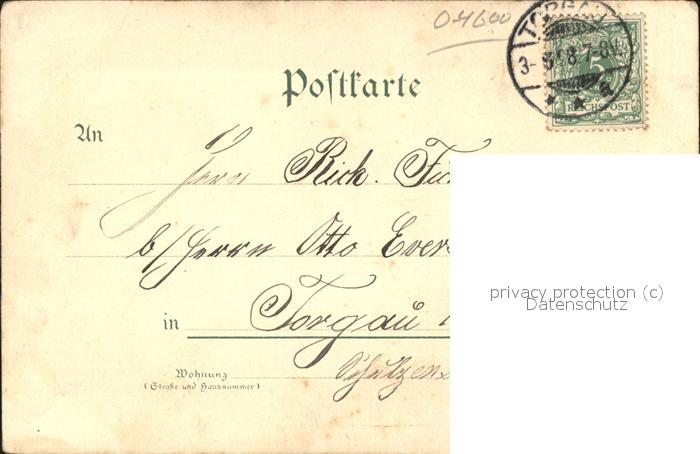 0-4600
TORGAU
7-8
5
REICHSPOST
Postkarte
An
Herrn Rich.
b/Herrn Otto Ever
in Torgau
Wohnung
(Straße und Hausnummer)
privacy protection (c)
Datenschutz